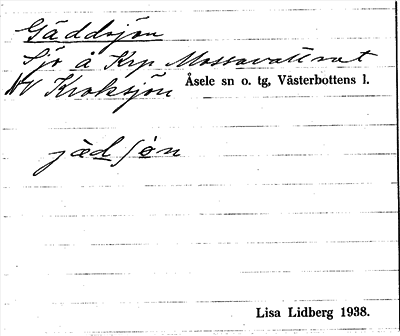 Gäddsjön
Sjö å Krp Mossavattnet
NV Kroksjön Åsele sn o. tg, Västerbottens l.
jædʃøn
Lisa Lidberg 1938.